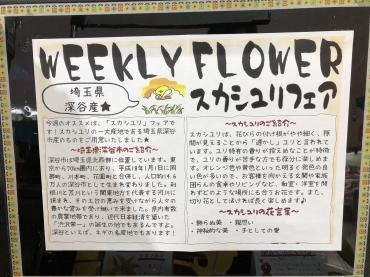 WEEKLY FLOWER
埼玉県
深谷産★
スカシユリフェア
今週のオススメは、「スカシユリ」フェアで
す！スカシユリの一大産地である埼玉県深谷
市産のものをご用意いたしました★
～埼玉県深谷市のご紹介～
深谷市は埼玉県北西部に位置しています。東
京から70km圏内にあり、平成18年1月1日に岡
部町、川本町、花園町と合併し、人口約14.6
万人の深谷市として生まれ変わりました。利
根川と荒川という関東地方を代表する河川に
挟まれ、その土台の恵みを受けながら人々の
豊かな営みを受け継いで来ました。県内有数
の農業地帯であり、近代日本経済を築いた
「渋沢栄一」の誕生の地でもあるんですよ。
深谷といえば、ネギも名産地でもあります！
～スカシユリのご紹介～
スカシユリは、花びらの付け根がやや細く、隙
間が見えることから「透かし」ユリと言われて
います。ユリ特有の香りが控え
オレンジ色や黄色といった明るく発色の良
い色が多いので、お客様を向かえる玄関や家族
団らんの食卓やリビングなど、和室・洋室を問
わずどのような場所にも合うお花です。また、
切り花として活けれ
～スカシユリの花言葉～
・飾らぬ美 ・親思い
・神秘的な美 ・子としての愛